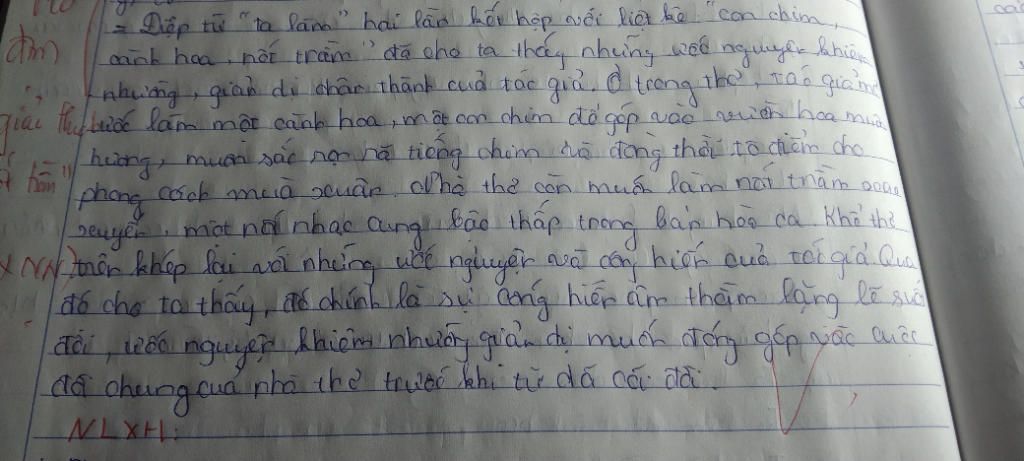 = Điệp từ "ta làm" hai lần kết hợp với liệt kê "con chim,
cành hoa, nốt trầm" đã cho ta thấy những ước nguyện khiêm
nhường, giản dị chân thành của tác giả. Ở trong thơ, tác giả
ước làm một cành hoa, một con chim để góp vào vườn hoa mùa
hương, muôn sắc rộn rã tiếng chim và đồng thời tô điểm cho
phong cách muà xuân. Nhà thơ còn muốn làm nốt trầm xao
xuyến, một nốt nhạc cung bậc thấp trong bản hoà ca. Khổ thơ
trên khép lại với những ước nguyện và cống hiến của tác giả. Qua
đó cho ta thấy, đó chính là sự cống hiến âm thầm lặng lẽ suốt
đời, ước nguyện khiêm nhường giản dị muốn đóng góp vào cuộc
đời chung cuả nhà thơ trước khi từ dã cõi đời.
NLXH: